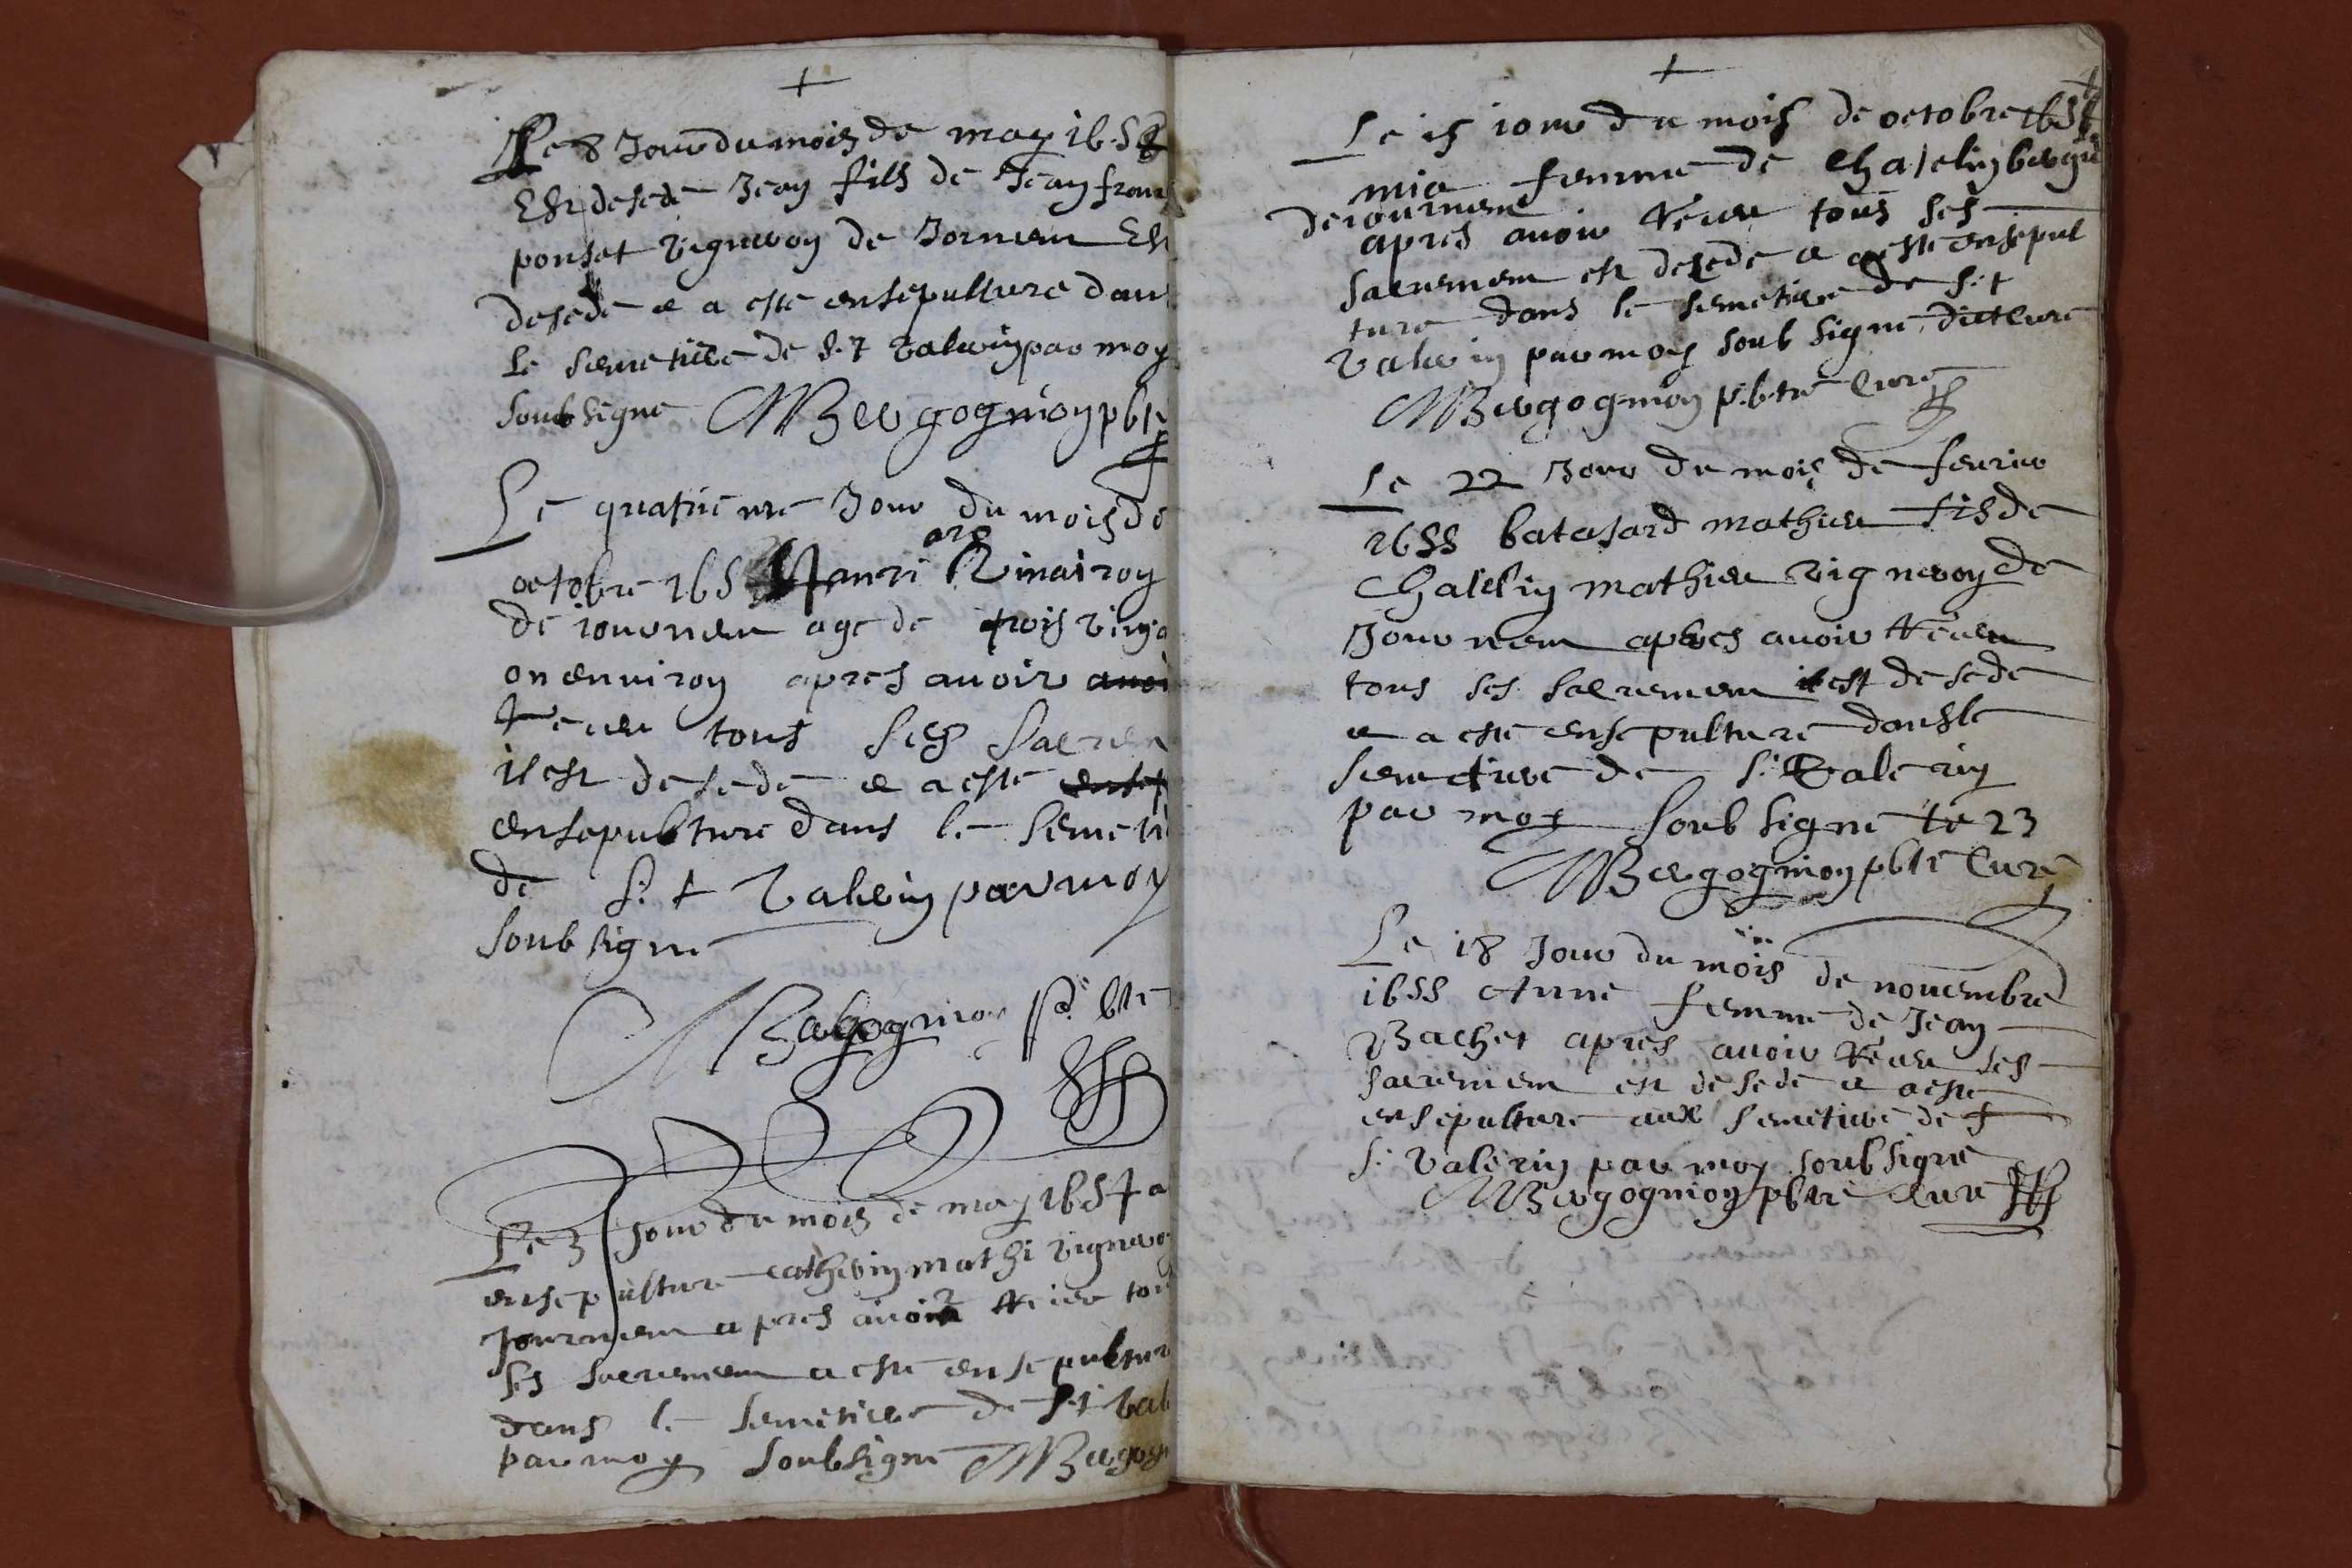 Le 8 Jour du mois de may 165
Est desede Jean fils de Jean fran
ponset vigneron de Jornem Est
desede e a este ensepulture dan
Le semetiere de S.t Valerin par moy
soubsigne MBergognion pbr
Le quatrieme Jour du mois de
octobre 165 Hanri
de iournem age de trois ving
on environ apres avoir avoi
receu tous ses sacrem
il est desede e a este ensep
ensepulture dans le semeti
de S.t Valerin par moy
soubsigne
MBergognion p.bre
Le 3 Jour du mois de may 1654 a
ensepulture catherin mathi vignero
Journem apres avoir receu tou
ses sacremem a este ensepultur
dans le semetiere de S.t Val
par moy soubsigne MBergogn
Le 15 iour du mois de octobre 165
mia femme de Chaselin bergie
de iournem
apres avoir receu tous ses
sacremem est desede e a este ensepul
ture dans le semetiere de S.t
Valerin par moy soub signe dict cure
MBergognion p.b.tre Cure
Le 22 Jour du mois de fevrier
1655 batasard mathieu fis de
Chaselin mathieu vigneron de
Journem apres avoir receu
tous ses sacremem il est desede
e a este ensepulture dans le
semetiere de S. Valerin
par moy soub signe le 23
MBergognion pbtre Cure
Le 18 Jour du mois de novembre
1655 Anne femme de Jean
Bachet apres avoir receu ses
sacremem est desede e a este
ensepulture aux semetiere de
S. Valerin par moy soubsigne
MBergognion pbtre Cure